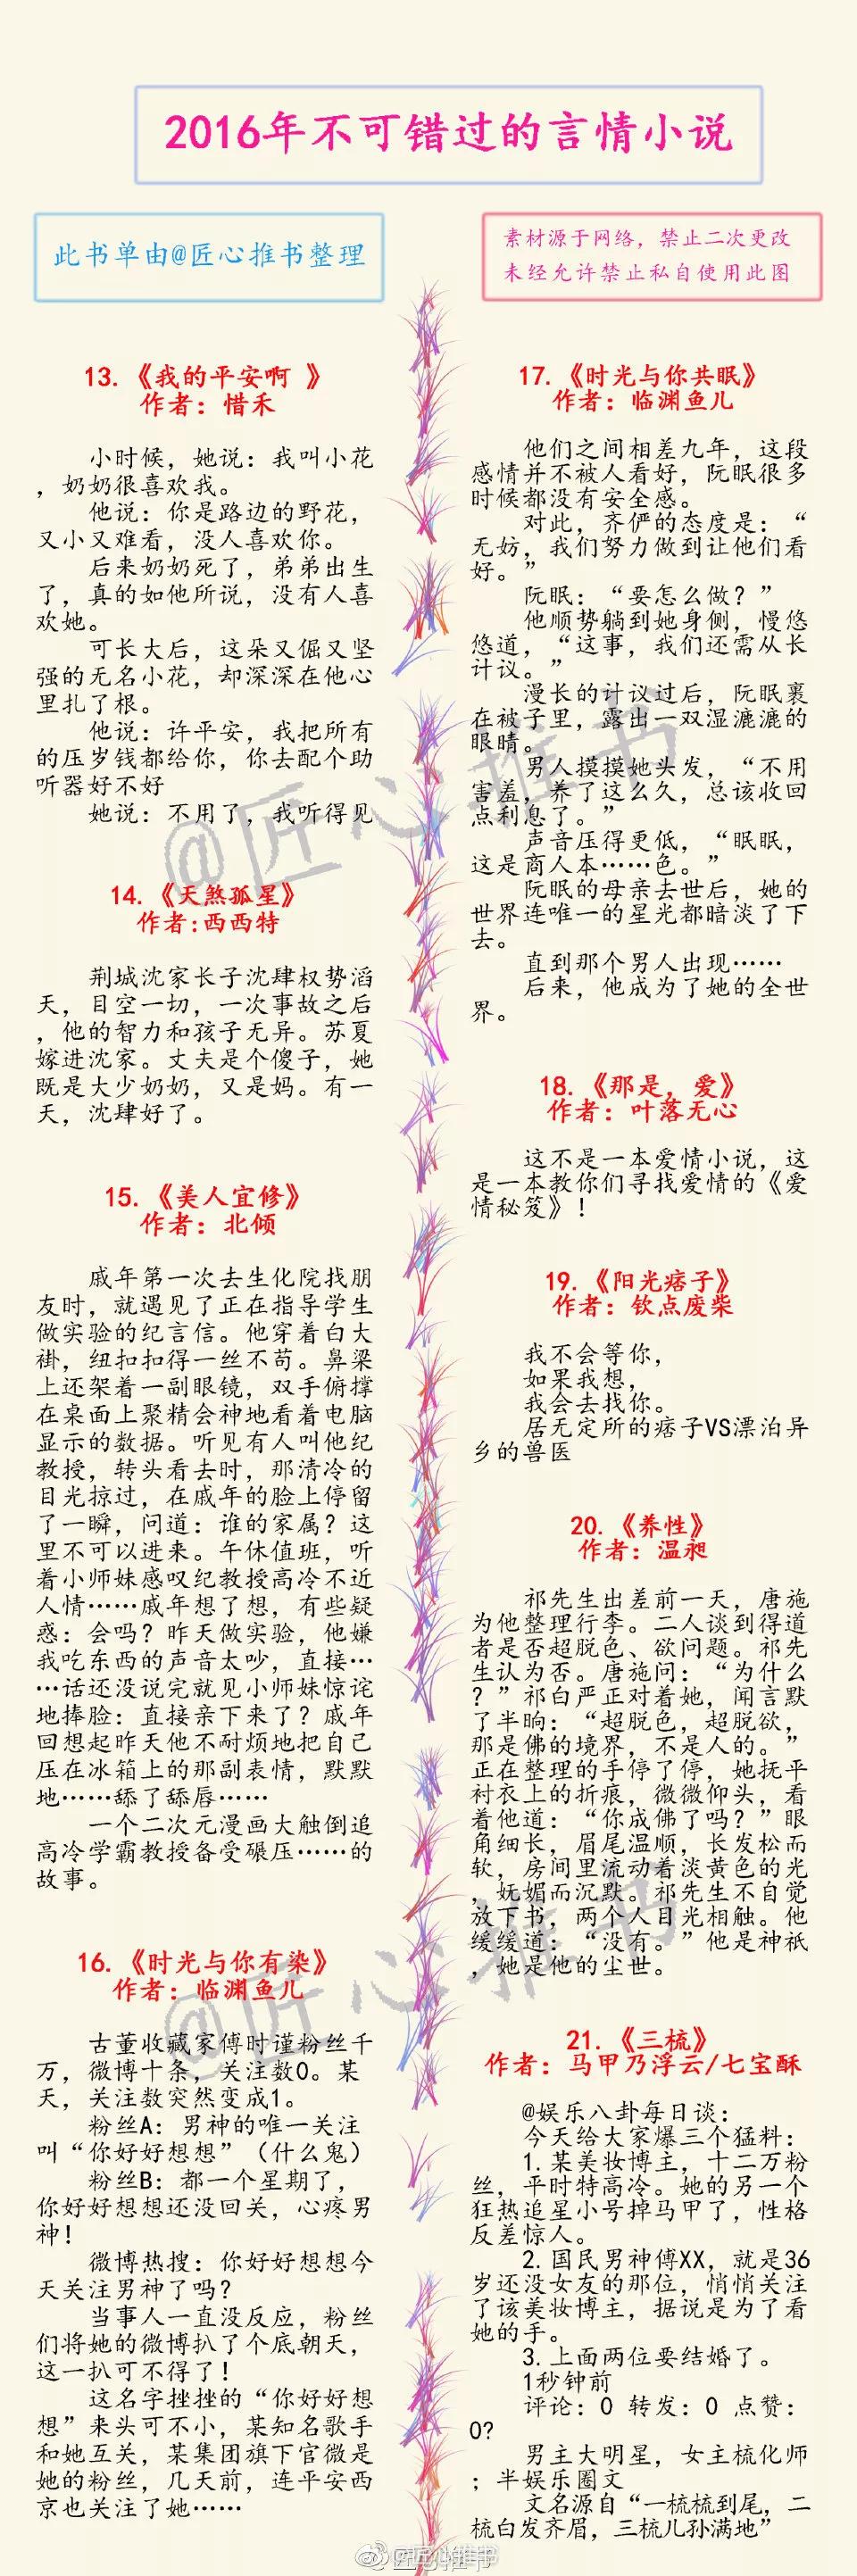 2016年不可错过的言情小说
此书单由@匠心推书整理
素材源于网络，禁止二次更改
未经允许禁止私自使用此图
13.《我的平安啊 》
作者：惜禾
小时候，她说：我叫小花
，奶奶很喜欢我。
他说：你是路边的野花，
又小又难看，没人喜欢你。
后来奶奶死了，弟弟出生
了，真的如他所说，没有人喜
欢她。
可长大后，这朵又倔又坚
强的无名小花，却深深在他心
里扎了根。
他说：许平安，我把所有
的压岁钱都给你，你去配个助
听器好不好
她说：不用了，我听得见
14.《天煞孤星》
作者:西西特
荆城沈家长子沈肆权势滔
天，目空一切，一次事故之后
，他的智力和孩子无异。苏夏
嫁进沈家。丈夫是个傻子，她
既是大少奶奶，又是妈。有一
天，沈肆好了。
15.《美人宜修》
作者：北倾
戚年第一次去生化院找朋
友时，就遇见了正在指导学生
做实验的纪言信。他穿着白大
褂，纽扣扣得一丝不苟。鼻梁
上还架着一副眼镜，双手俯撑
在桌面上聚精会神地看着电脑
显示的数据。听见有人叫他纪
教授，转头看去时，那清冷的
目光掠过，在戚年的脸上停留
了一瞬，问道：谁的家属？这
里不可以进来。午休值班，听
着小师妹感叹纪教授高冷不近
人情……戚年想了想，有些疑
惑：会吗？昨天做实验，他嫌
我吃东西的声音太吵，直接…
…话还没说完就见小师妹惊诧
地捧脸：直接亲下来了？戚年
回想起昨天他不耐烦地把自己
压在冰箱上的那副表情，默默
地……舔了舔唇……
一个二次元漫画大触倒追
高冷学霸教授备受碾压……的
故事。
16.《时光与你有染》
作者：临渊鱼儿
古董收藏家傅时谨粉丝千
万，微博十条，关注数0。某
天，关注数突然变成1。
粉丝A：男神的唯一关注
叫“你好好想想”（什么鬼）
粉丝B：都一个星期了，
你好好想想还没回关，心疼男
神！
微博热搜：你好好想想今
天关注男神了吗？
当事人一直没反应，粉丝
们将她的微博扒了个底朝天，
这一扒可不得了！
这名字挫挫的“你好好想
想”来头可不小，某知名歌手
和她互关，某集团旗下官微是
她的粉丝，几天前，连平安西
京也关注了她……
17.《时光与你共眠》
作者：临渊鱼儿
他们之间相差九年，这段
感情并不被人看好，阮眠很多
时候都没有安全感。
对此，齐俨的态度是：“
无妨，我们努力做到让他们看
好。”
阮眠：“要怎么做？”
他顺势躺到她身侧，慢悠
悠道，“这事，我们还需从长
计议。”
漫长的计议过后，阮眠裹
在被子里，露出一双湿漉漉的
眼睛。
男人摸摸她头发，“不用
害羞，养了这么久，总该收回
点利息了。”
声音压得更低，“眠眠，
这是商人本……色。”
阮眠的母亲去世后，她的
世界连唯一的星光都暗淡了下
去。
直到那个男人出现……
后来，他成为了她的全世
界。
18.《那是，爱》
作者：叶落无心
这不是一本爱情小说，这
是一本教你们寻找爱情的《爱
情秘笈》！
19.《阳光痞子》
作者：钦点废柴
我不会等你，
如果我想，
我会去找你。
居无定所的痞子VS漂泊异
乡的兽医
20.《养性》
作者：温昶
祁先生出差前一天，唐施
为他整理行李。二人谈到得道
者是否超脱色、欲问题。祁先
生认为否。唐施问：“为什么
？”祁白严正对着她，闻言默
了半晌：“超脱色，超脱欲，
那是佛的境界，不是人的。”
正在整理的手停了停，她抚平
衬衣上的折痕，微微仰头，看
着他道：“你成佛了吗？”眼
角细长，眉尾温顺，长发松而
软，房间里流动着淡黄色的光
，妩媚而沉默。祁先生不自觉
放下书，两个人目光相触。他
缓缓道：“没有。”他是神祇
，她是他的尘世。
21.《三梳》
作者：马甲乃浮云/七宝酥
@娱乐八卦每日谈：
今天给大家爆三个猛料：
1.某美妆博主，十二万粉
丝，平时特高冷。她的另一个
狂热追星小号掉马甲了，性格
反差惊人。
2.国民男神傅XX，就是36
岁还没女友的那位，悄悄关注
了该美妆博主，据说是为了看
她的手。
3.上面两位要结婚了。
1秒钟前
评论：0 转发：0 点赞：
0?
男主大明星，女主梳化师
；半娱乐圈文
文名源自“一梳梳到尾，二
梳白发齐眉，三梳儿孙满地”
@匠心推书
@匠心推书
@匠心推书